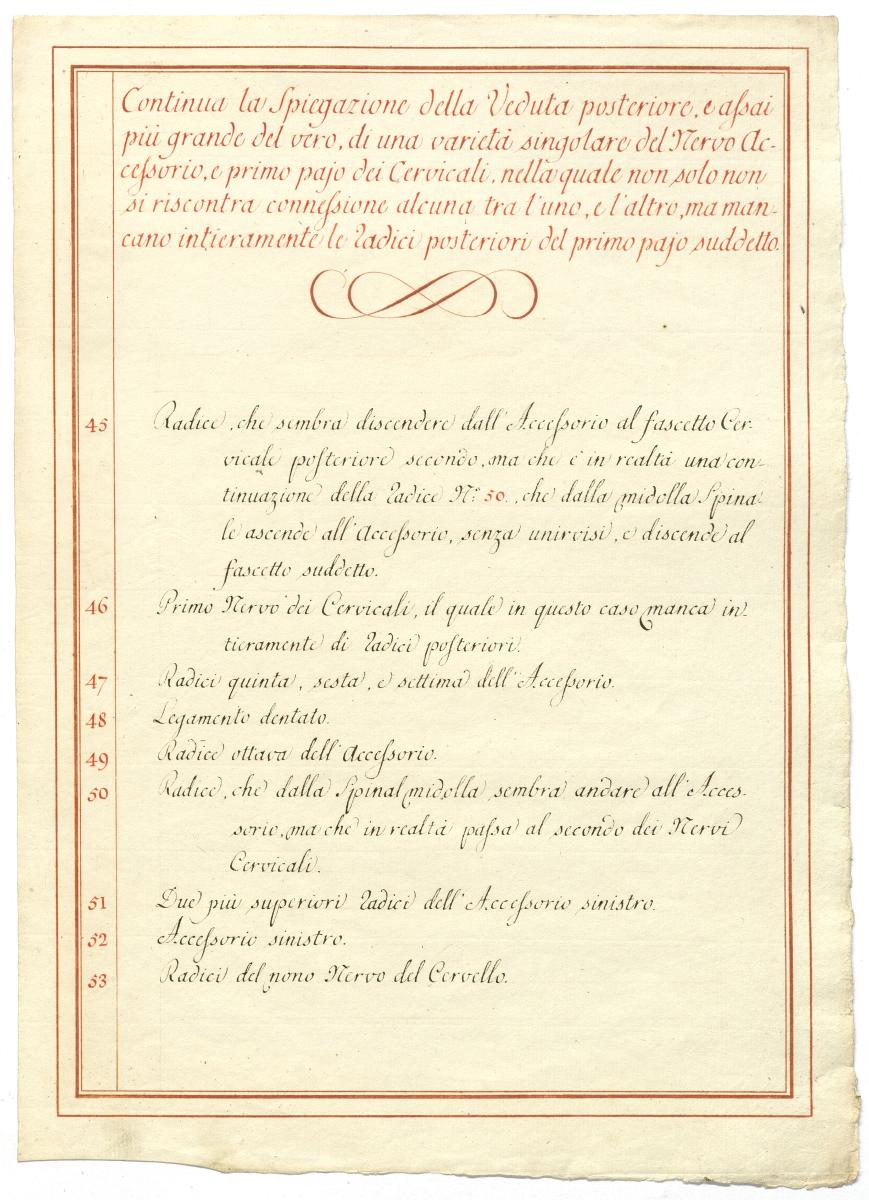 Continua la Spiegazione della Veduta posteriore, e assai
più grande del vero, di una varietà singolare del Nervo Ac-
cessorio, e primo pajo dei Cervicali, nella quale non solo non
si riscontra connessione alcuna tra l'uno, e l'altro, ma man-
cano intieramente le Radici posteriori del primo pajo suddetto.
45 Radice, che sembra discendere dall'Accessorio al fascetto Cer-
vicale posteriore secondo, ma che è in realtà una con-
tinuazione della Radice N.º 50., che dalla midolla Spina-
le ascende all'Accessorio, senza unirvisi, e discende al
fascetto suddetto.
46 Primo Nervo dei Cervicali, il quale in questo caso manca in-
tieramente di Radici posteriori.
47 Radici quinta, sesta, e settima dell'Accessorio.
48 Legamento dentato.
49 Radice ottava dell'Accessorio.
50 Radice, che dalla Spinal midolla sembra andare all'Acces-
sorio, ma che in realtà passa al secondo dei Nervi
Cervicali.
51 Due più superiori Radici dell'Accessorio sinistro.
52 Accessorio sinistro.
53 Radici del nono Nervo del Cervello.